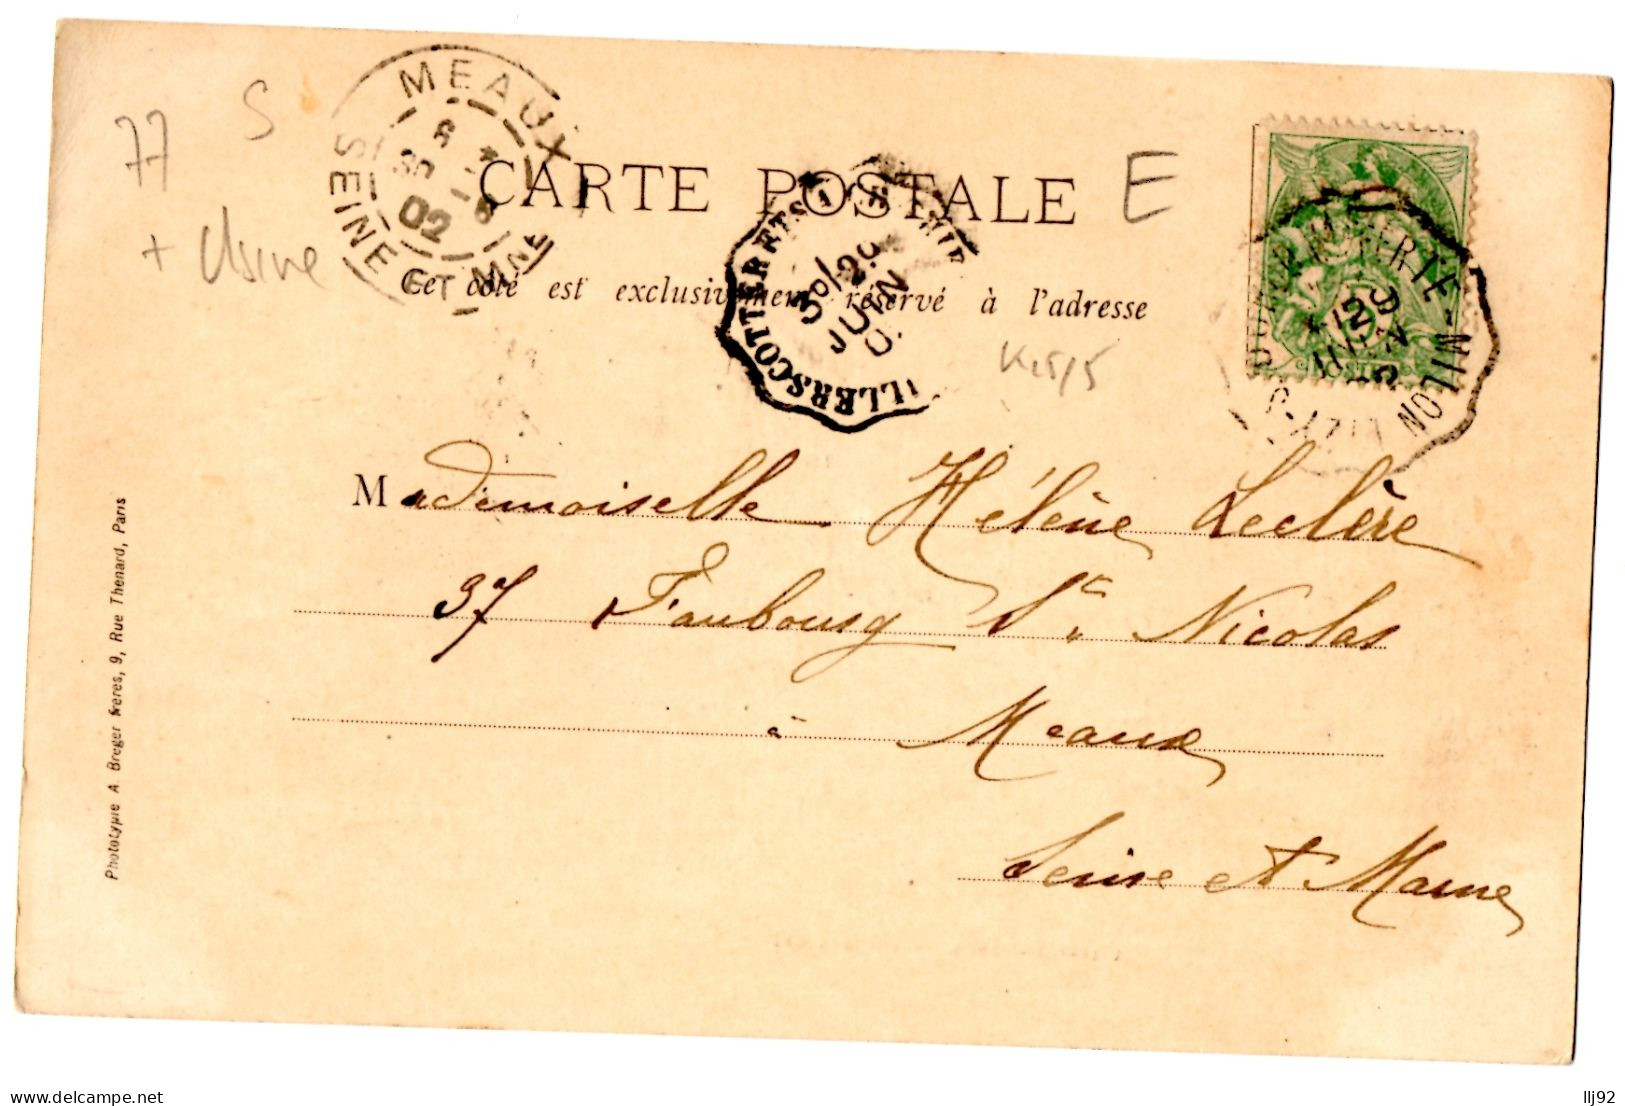 77 S
+ Usine
MEAUX
SEINE ET MNE
02
CARTE POSTALE
E
Ce côté est exclusivement réservé à l'adresse
VILLERSCOTTERETS
29
JUIN
FERTE-MILON
29
JUIN
POSTES
Mademoiselle Hélène Leclère
37 Faubourg St Nicolas
à Meaux
Seine et Marne
Phototypie A. Breger frères, 9, Rue Thenard, Paris
delcampe.net
llj92